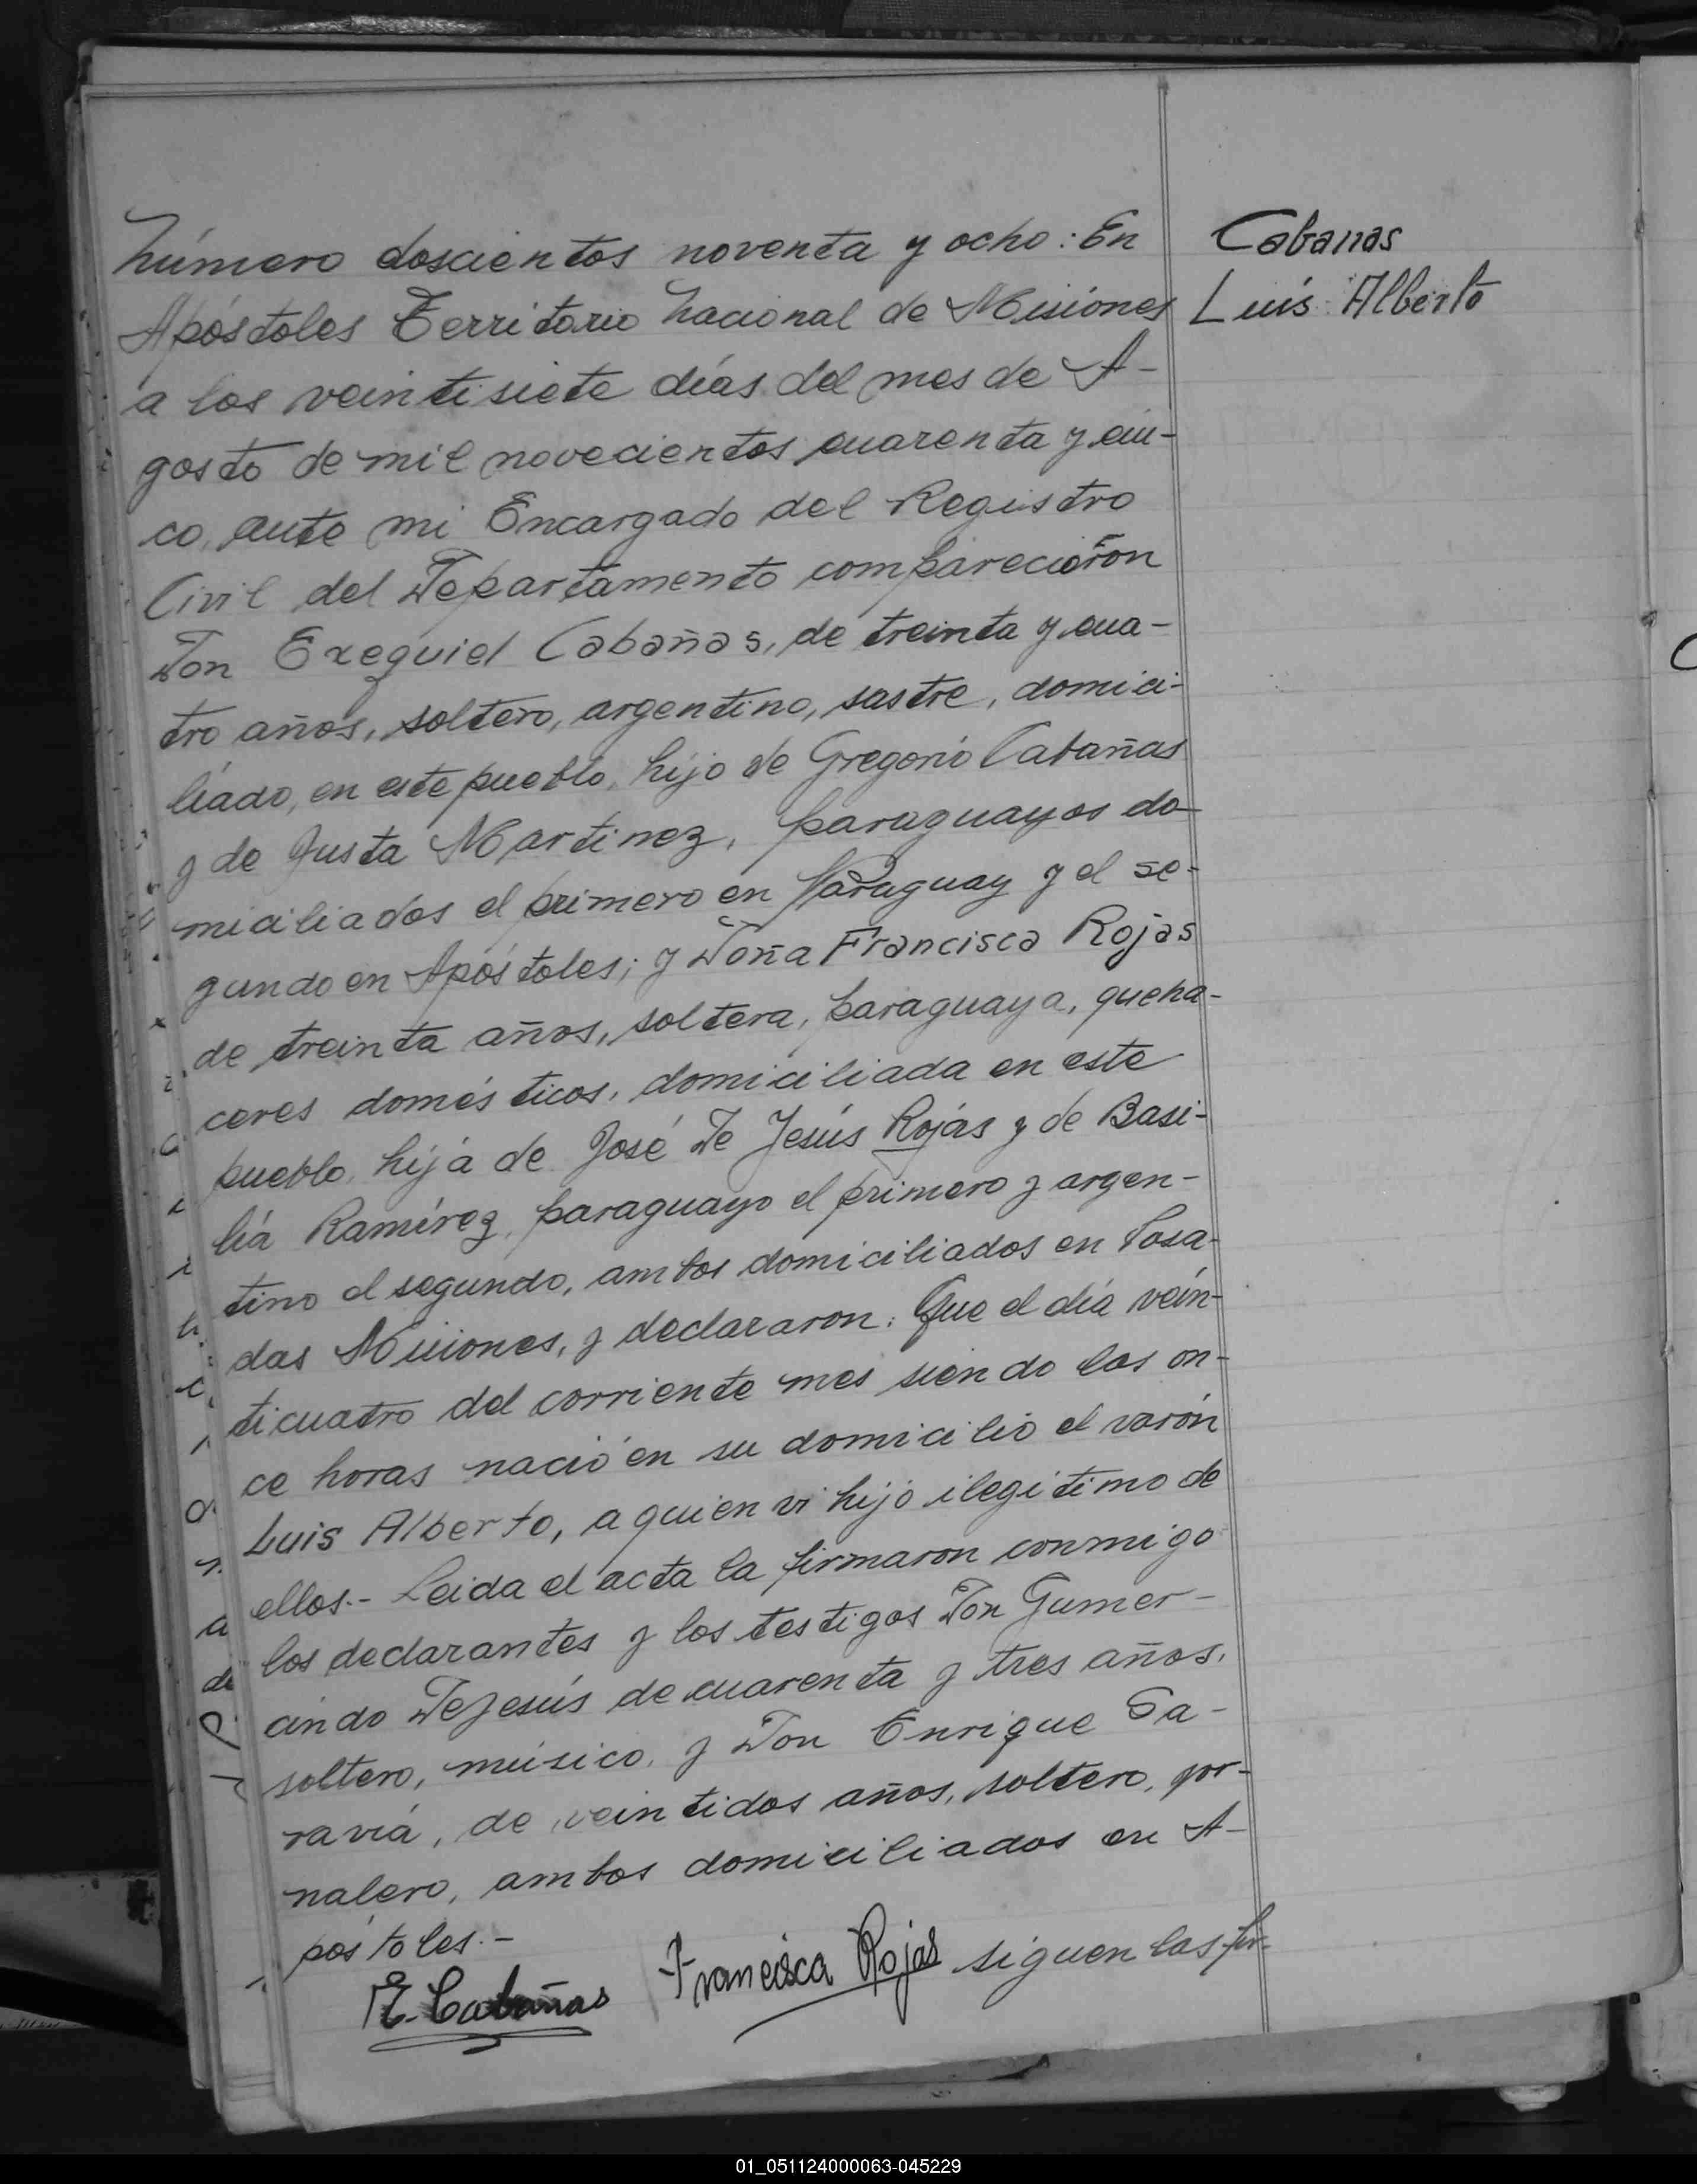 Número doscientos noventa y ocho: En
Apóstoles Territorio Nacional de Misiones
a los veintisiete días del mes de A-
gosto de mil novecientos cuarenta y cin-
co, ante mi Encargado del Registro
Civil del Departamento comparecieron
Don Exequiel Cabañas, de treinta y cua-
tro años, soltero, argentino, sastre, domici-
liado, en este pueblo, hijo de Gregorio Cabañas
y de Justa Martinez, paraguayos do-
miciliados el primero en Paraguay y el se-
gundo en Apóstoles; y Doña Francisca Rojas
de treinta años, soltera, paraguaya, queha-
ceres domésticos, domiciliada en este
pueblo, hija de José De Jesús Rojas y de Basi-
lia Ramírez, paraguayo el primero y argen-
tino el segundo, ambos domiciliados en Posa-
das Misiones, y declararon: Que el día vein-
ticuatro del corriente mes siendo las on-
ce horas nació en su domicilio el varón
Luis Alberto, a quien vi hijo ilegitimo de
ellos.- Leida el acta la firmaron conmigo
los declarantes y los testigos Don Gumer-
cindo Dejesús de cuarenta y tres años,
soltero, músico, y Don Enrique Sa-
ravia, de veintidos años, soltero, jor-
nalero, ambos domiciliados en A-
póstoles.-
E. Cabañas Francisca Rojas siguen las fir-
Cabanas
Luis Alberto
01_051124000063-045229